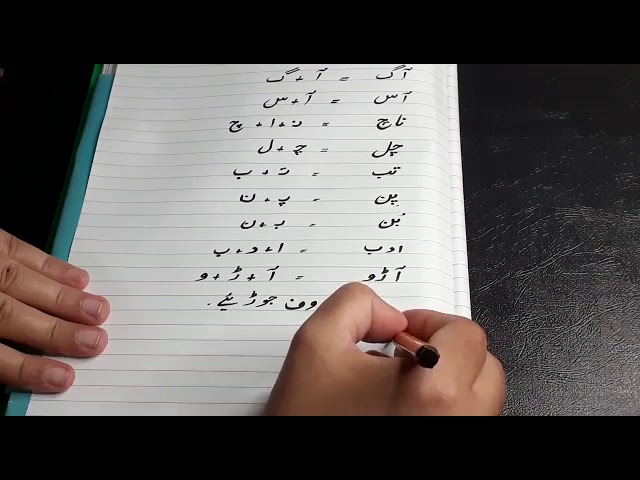 آگ = آ + گ
آس = آ + س
ناچ = ن + ا + چ
چل = چ + ل
تب = ت + ب
پن = پ + ن
بن = ب + ن
ادب = ا + د + ب
آڑو = آ + ڑ + و
جوڑیئے .